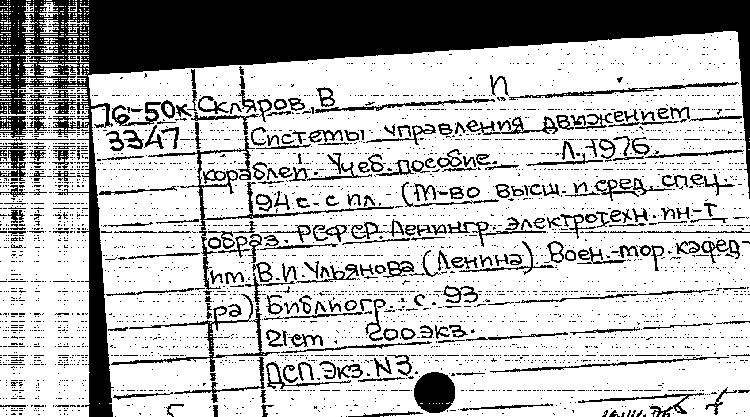 76-50к Скляров, В П
3347 Системы управления движением
кораблей. Учеб. пособие. Л., 1976.
94 с. с ил. (М-во высш. и сред. спец.
образ. РСФСР. Ленингр. электротехн. ин-т
им. В.И. Ульянова (Ленина) Воен.-мор. кафед-
ра) Библиогр.: с. 93
21 cm. 200 экз.
ДСП. Экз. N 3.